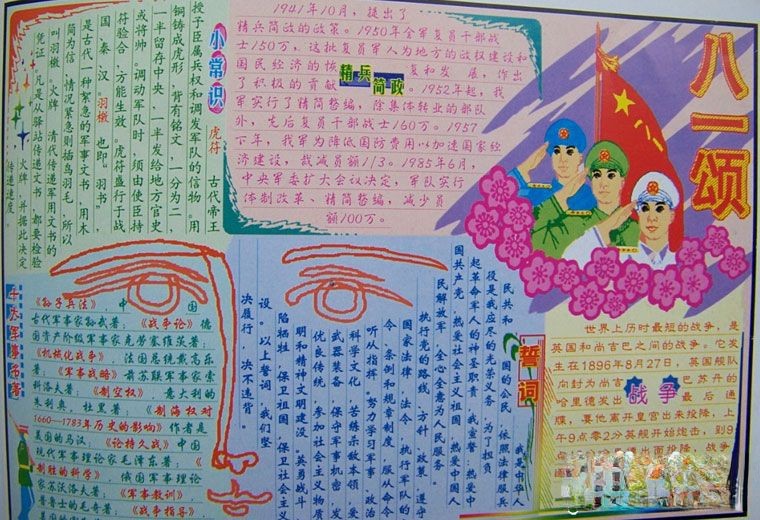 小常识
虎符 古代帝王
授予臣属兵权和调发军队的信物。用
铜铸成虎形，背有铭文，一分为二，
一半留存中央，一半发给地方官史
或将帅。调动军队时，须由使臣持
符验合，方能生效。虎符盛行于战
国秦汉。羽檄 也即“羽书”。
是古代一种紧急的军事文书，用木
简为信，情况紧急则插鸟羽毛，所以
叫羽檄。火牌 清代传递军用文书的
凭证，凡是从驿站传递文书，都要检验
火牌，并据此决定
传递速度。
1941年10月，提出了
精兵简政的政策。1950年全军复员干部战
士150万，这批复员军人为地方的政权建设和
国民经济的恢复和发展，作出
了积极的贡献。1952年起，我
军实行了精简整编，除集体转业的部队
外，先后复员干部战士160万。1957
下年，我军为降低国防费用以加速国家经
济建设，裁减员额1/3。1985年6月，
中央军委扩大会议决定，军队实行
体制改革、精简整编，减少员
额100万。
精兵简政
八一颂
《孙子兵法》，中国
古代军事家孙武著；《战争论》德
国资产阶级军事家克劳塞维茨著；
《机械化战争》，法国总统戴高乐
著；《军事战略》前苏联军事家索
科洛夫著；《制空权》，意大利的
朱利奥，杜黑著；《制海权对
1660—1783年历史的影响》作者是
美国的马汉；《论持久战》中国
现代军事理论家毛泽东著；《
制胜的科学》，俄国军事理论
家苏沃洛夫著；《军事教训》
普鲁士的毛奇著；《战争指导》
誓词
我是中华人
民共和国的公民，依照法律服兵
役是我应尽的光荣义务，为了担负
起革命军人的神圣职责，我宣誓：热爱中
国共产党，热爱社会主义祖国，热爱中国人
民解放军，全心全意为人民服务。
执行党的路线、方针、政策，遵守
国家法律、法令，执行军队的
条令、条例和规章制度，服从命令
听从指挥。努力学习军事、政治
科学文化，苦练杀敌本领，爱护
武器装备，保守军事机密，发扬
优良传统，参加社会主义物质文
明和精神文明建设。英勇战斗
陷牺牲，保卫祖国，保卫社会主义建
设。以上誓词，我们坚
决履行，决不违背。
战争
世界上历时最短的战争，是
英国和尚吉巴之间的战争。它发
生在1896年8月27日，英国舰队
向封为尚吉巴苏丹的
哈里德发出最后通
牒，要他离开皇宫出来投降，上
午9点零2分英舰开始炮击，到9